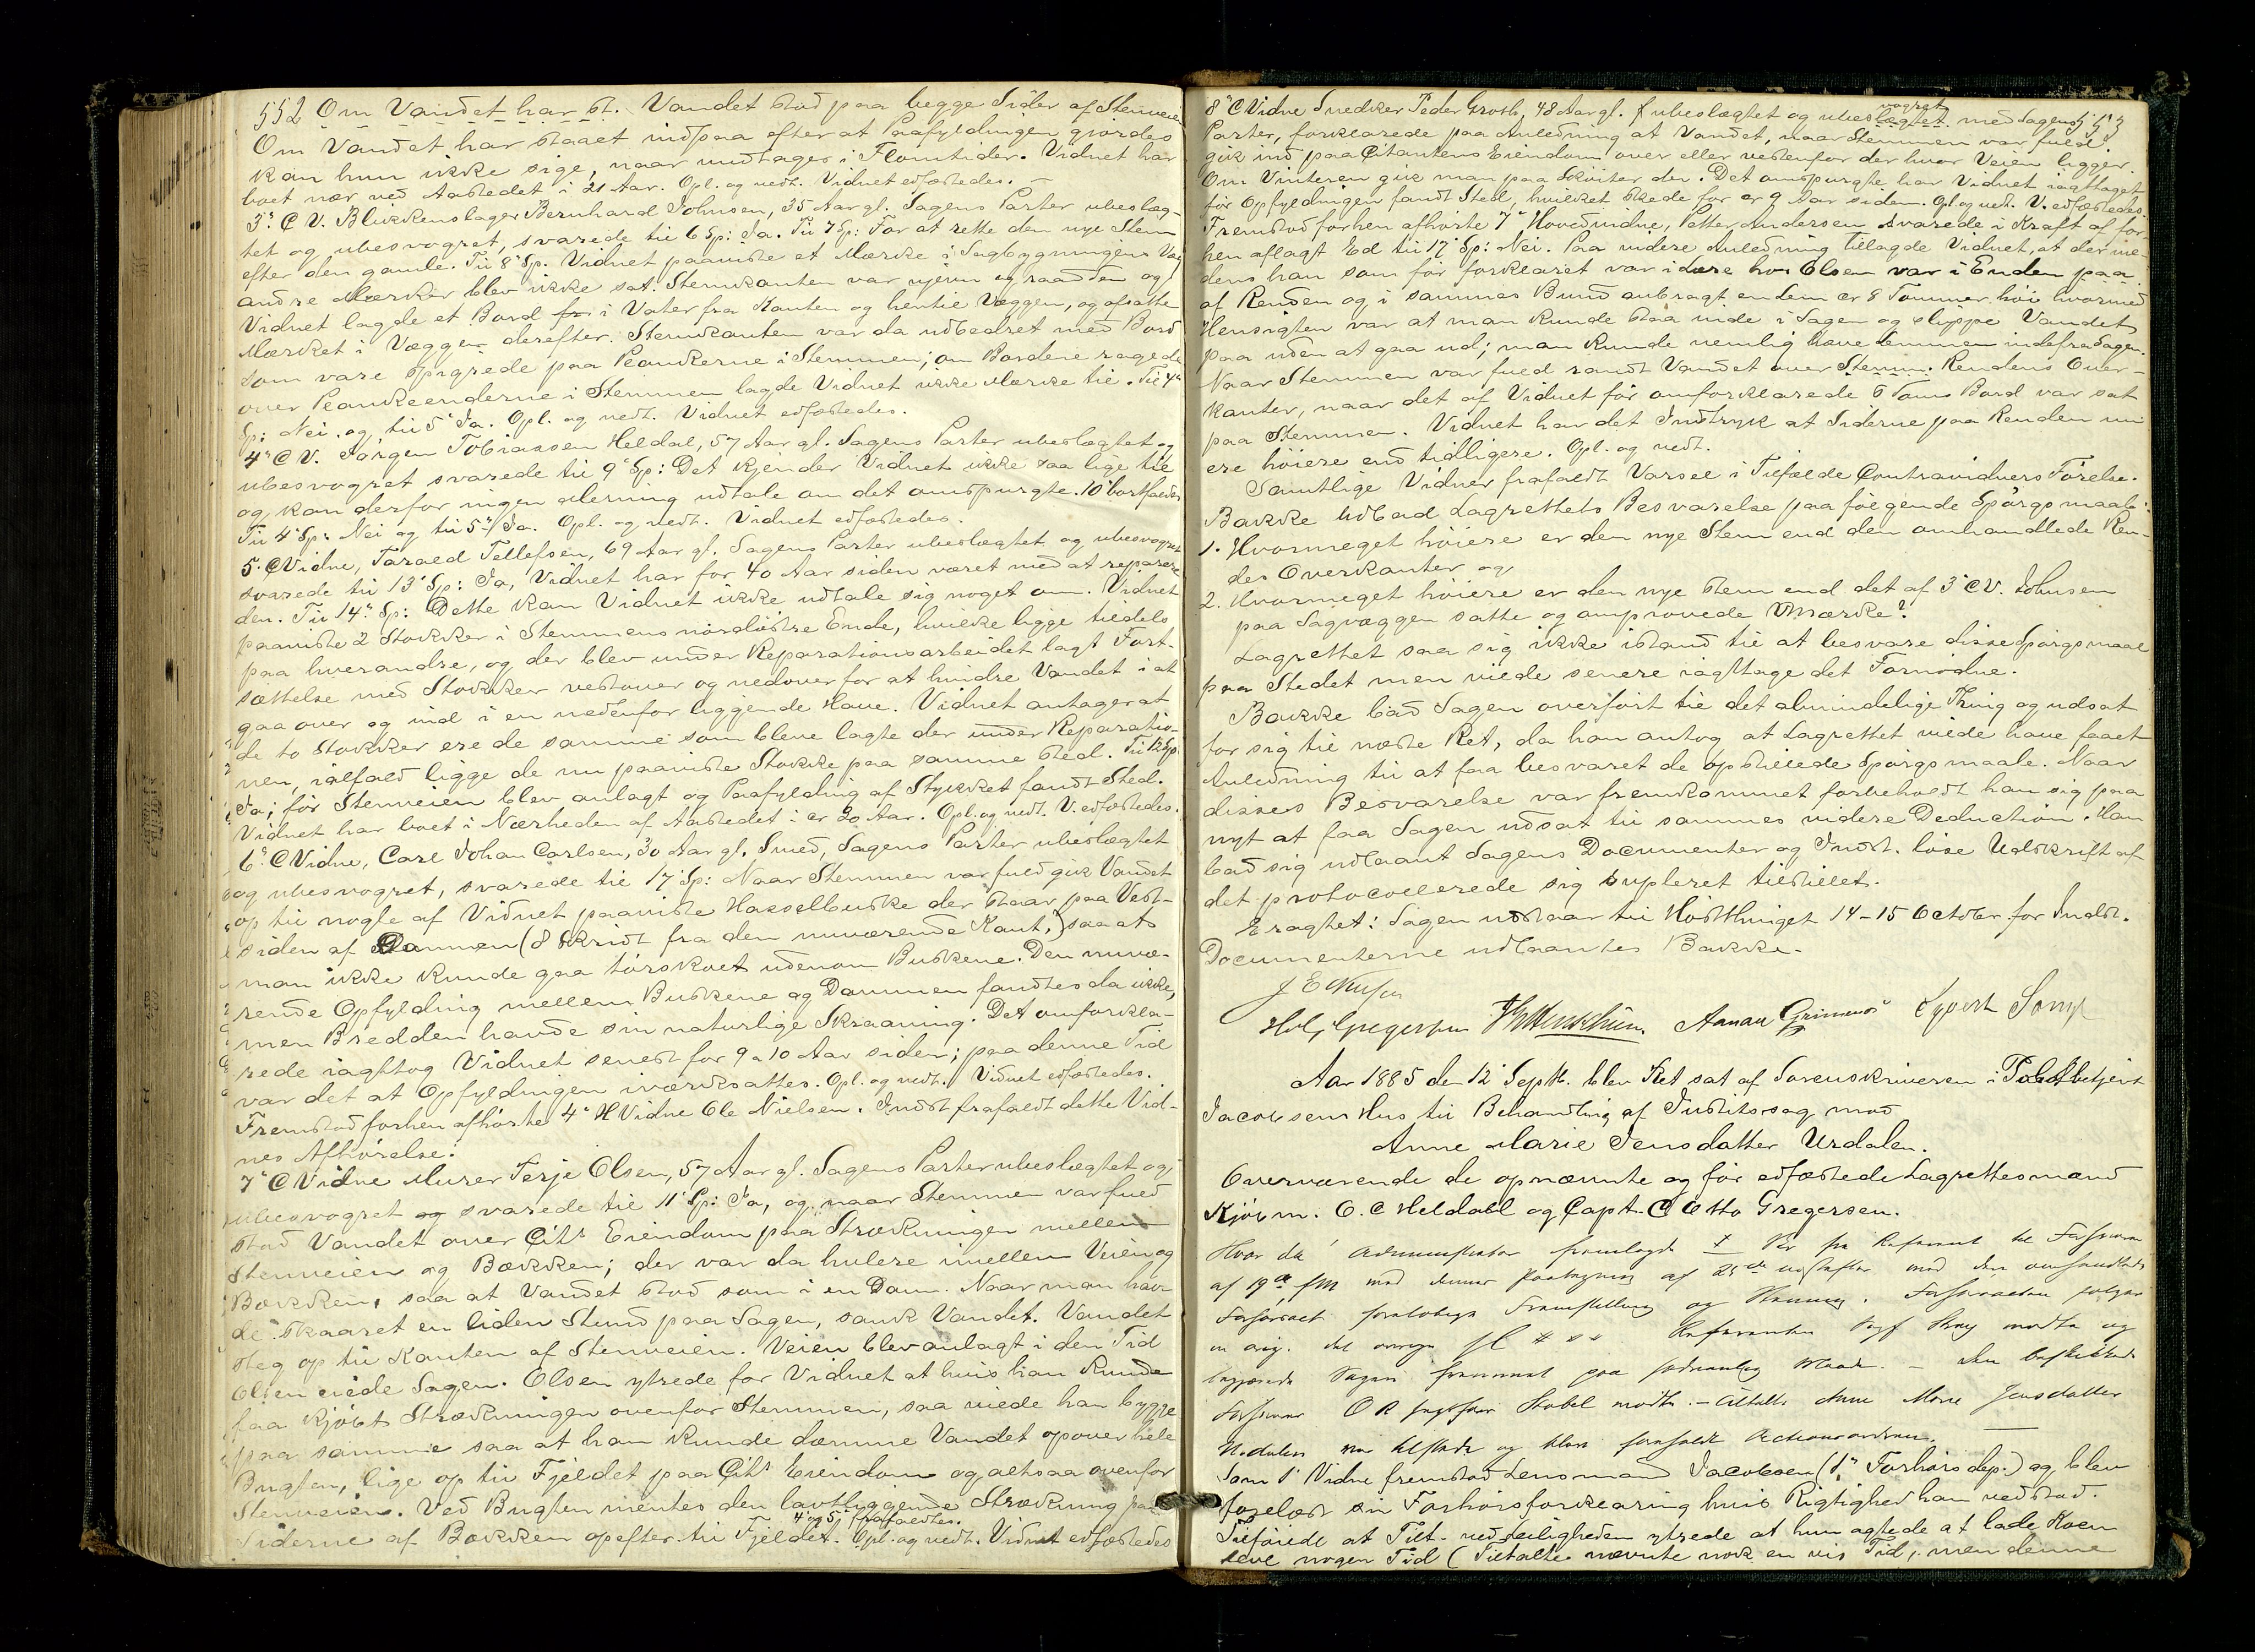 552 Om Vandet har st. Vandet stod paa begge Sider af Stenveien
Om Vandet har staaet indpaa efter at Paafyldningen gjordes
kan hun ikke sige, naar undtages i Flomtider. Vidnet har
boet nær ved Aastedet i 21 Aar. Opl. og vedt. Vidnet edfæstedes. –
3' C V. Blikkenslager Bernhard Johnsen, 35 Aar gl. Sagens Parter ubeslæg-
tet og ubesvogret, svarede til 6 Sp: Ja. Til 7 Sp: For at sette den nye Stem
efter den gamle. Til 8' Sp. Vidnet paaviste et Mærke i Sagbygningens Væg
andre Mærker blev ikke sat. Stemkanten var ujevn og raadden og
Vidnet lagde et Bord fra i Vater fra Kanten og hentil Væggen, og afsatte
Mærket i Væggen derefter. Stemkanten var da udbedret med Bord
som vare spigrede paa Plankerne i Stemmen; om Bordene ragede
over Plankeenderne i Stemmen lagde Vidnet ikke Mærke til. Til 4'
Sp: Nei, og til 5' Ja. Opl. og vedt. Vidnet edfæstedes.
4' C V. Jørgen Tobiassen Heldal, 57 Aar gl. Sagens Parter ubeslægtet og
ubesvogret svarede til 9' Sp: Det kjender Vidnet ikke saa lige til
og kan derfor ingen Mening udtale om det omspurgte. 10' bortfaldes
Til 4' Sp: Nei og til 5' Ja. Opl. og vedt. Vidnet edfæstedes.
5' C Vidne, Tarald Tellefsen, 69 Aar gl. Sagens Parter ubeslægtet og ubesvogret
svarede til 13' Sp: Ja, Vidnet har for 40 Aar siden været med at reparere
den. Til 14' Sp: Dette kan Vidnet ikke udtale sig noget om. Vidnet
paaviste 2 Stokker i Stemmens nordøstre Ende, hvilke ligge tildels
paa hverandre, og der blev under Reparationsarbeidet lagt Fort-
sættelse med Stokker vestover og nedover for at hindre Vandet i at
gaa over og ind i en nedenfor liggende Have. Vidnet antager at
de to Stokker ere de samme som bleve lagte der under Reparatio-
nen, ialfald ligge de nu paaviste Stokke paa samme Sted. Til 12 Sp
Ja; før Stenveien blev anlagt og Paafylding af Stykket fandt Sted.
Vidnet har boet i Nærheden af Aastedet i er 30 Aar. Opl. og vedt. V. edfæstedes.
6' C Vidne, Carl Johan Carlsen, 30 Aar gl. Smed, Sagens Parter ubeslægtet
og ubesvogret, svarede til 17' Sp: Naar Stemmen var fuld gik Vandet
op til nogle af Vidnet paaviste Hasselbuske der staar paa Vest-
siden af Dammen (8 Skridt fra den nuværende Kant,) saa at
man ikke kunde gaa tørskoet udenom Buskene. Den nuvæ-
rende Opfylding mellem Buskene og Dammen fandtes da ikke,
men Bredden havde sin naturlige Skraaning. Det omforkla-
rede iagttog Vidnet senest for 9 a 10 Aar siden; paa denne Tid
var det at Opfyldningen iværksattes. Opl. og vedt. Vidnet edfæstedes.
Fremstod forhen afhørte 4' H Vidne Ole Nielsen. Indst frafaldt dette Vid-
nes Afhørelse.
7' C Vidne Murer Terje Olsen, 57 Aar gl. Sagens Parter ubeslægtet og
ubesvogret og svarede til 11' Sp: Ja, og naar Stemmen var fuld
stod Vandet over Cits Eiendom paa Strækningen mellem
Stenveien og Bækken; der var da hulere imellem Veien og
Bækken, saa at Vandet stod som i en Dam. Naar man hav-
de skaaret en liden Stund paa Sagen, sank Vandet. Vandet
steg op til Kanten af Stenveien. Veien blev anlagt i den Tid
Olsen eiede Sagen. Olsen ytrede for Vidnet at hvis han kunde
faa kjøbt Strækningen ovenfor Stemmen, saa vilde han bygge
paa samme saa at han kunde dæmme Vandet op over hele
Bugten, lige op til Fjeldet paa Cits Eiendom og altsaa ovenfor
Stenveien. Ved Bugten mentes den lavtliggende Strækning paa
4 og 5 frafaldtes.
Siderne af Bækken opefter til Fjeldet. Opl. og vedt. Vidnet edfæstedes
553
8' C Vidne Snedker Peder Groth, 48 Aar gl. ubeslægtet og ubeslægtet vogret med Sagens
Parter, forklarede paa Anledning at Vandet, naar Stemmen var fuld
gik ind paa Citantens Eiendom over eller vestenfor der hvor Veien ligger.
Om Vinteren gik man paa Skøiter der. Det omspurgte har Vidnet iagttaget
før Opfyldingen fandt Sted, hvilket skede for er 9 Aar siden. Opl. og vedt. V. edfæstedes.
Fremstod forhen afhørte 7' Hovedvidne, Petter Andersen svarede i Kraft af for-
hen aflagt Ed til 17' Sp: Nei. Paa videre Anledning tillagde Vidnet, at der me-
dens han som før forklaret var i Lære hos Olsen var i Enden paa
af Renden og i sammes Bund anbragt en Lem er 8 Tommer høi hvormed
Hensigten var at man kunde staa inde i Sagen og slippe Vandet
paa uden at gaa ud; man kunde nemlig have Lemmen indefra Sagen.
Naar Stemmen var fuld randt Vandet over Stemm. Rendens Over-
kanter, naar det af Vidnet før omforklarede 6 Toms Bord var sat
paa Stemmen. Vidnet har det Indtryk at Siderne paa Renden nu
ere høiere end tidligere. Opl. og vedt.
Samtlige Vidner frafaldt Varsel i Tilfælde Contravidners Førelse.
Bakke udbad Lagrettets Besvarelse paa følgende Spørgsmaale:
1. Hvormeget høiere er den nye Stem end den omhandlede Ren-
des Overkanter og
2. Hvormeget høiere er den nye Stem end det af 3' C V. Johnsen
paa Sagvæggen satte og omprovede Mærke?
Lagrettet saa sig ikke istand til at besvare disse Spørgsmaal
paa Stedet men vilde senere iagttage det Fornødne.
Bakke bad Sagen overført til det almindelige Thing og udsat
for sig til næste Ret, da han antog at Lagrettet vilde have faaet
Anledning til at faa besvaret de opstillede Spørgsmaale. Naar
disses Besvarelse var fremkommet forbeholdt han sig paa
nyt at faa Sagen udsat til sammes videre Deduction. Han
bad sig udlaant Sagens Documenter og Indst. løse Udskrift af
det protocollerede sig supleret tilstillet.
Eragtet: Sagen udstaar til Høstthinget 14–15 October for Indst.
Documenterne udlaantes Bakke.
Gregersen Aanau Grimenes
Aar 1885 den 12' Septb. blev Ret sat af Sorenskriveren i Politibetjent
Jacobsens Hus til Behandling af Justitssag mod
Anne Marie Jensdatter Urdalen.
Overværende de opnævnte og før edfæstede Lagrettesmænd
Kjøbm. O. C Heldahl og Capt. C Otto Gregersen.
Hvor da Administrator fremlagde
af 19de med dennes Paategning af 25de
Forsvaret foreløbige Fremstilling og
Sagen fremmet paa sædvanlig Maade. – Den beskikkede
Forsvarer O R Sagfører Stabel mødte. – Tiltalte Anne Marie Jensdatter
Urdalen var tilstede og
Som 1' Vidne fremstod Lensmand Jacobsen (1' Forhørs dep.) og blev
forelæst sin Forhørsforklaring hvis Rigtighed han vedstod.
Tilføiede at Tilt. ved Leiligheden ytrede at hun agtede at lade Koen
leve nogen Tid (Tiltalte nævnte nok en vis Tid, men denne